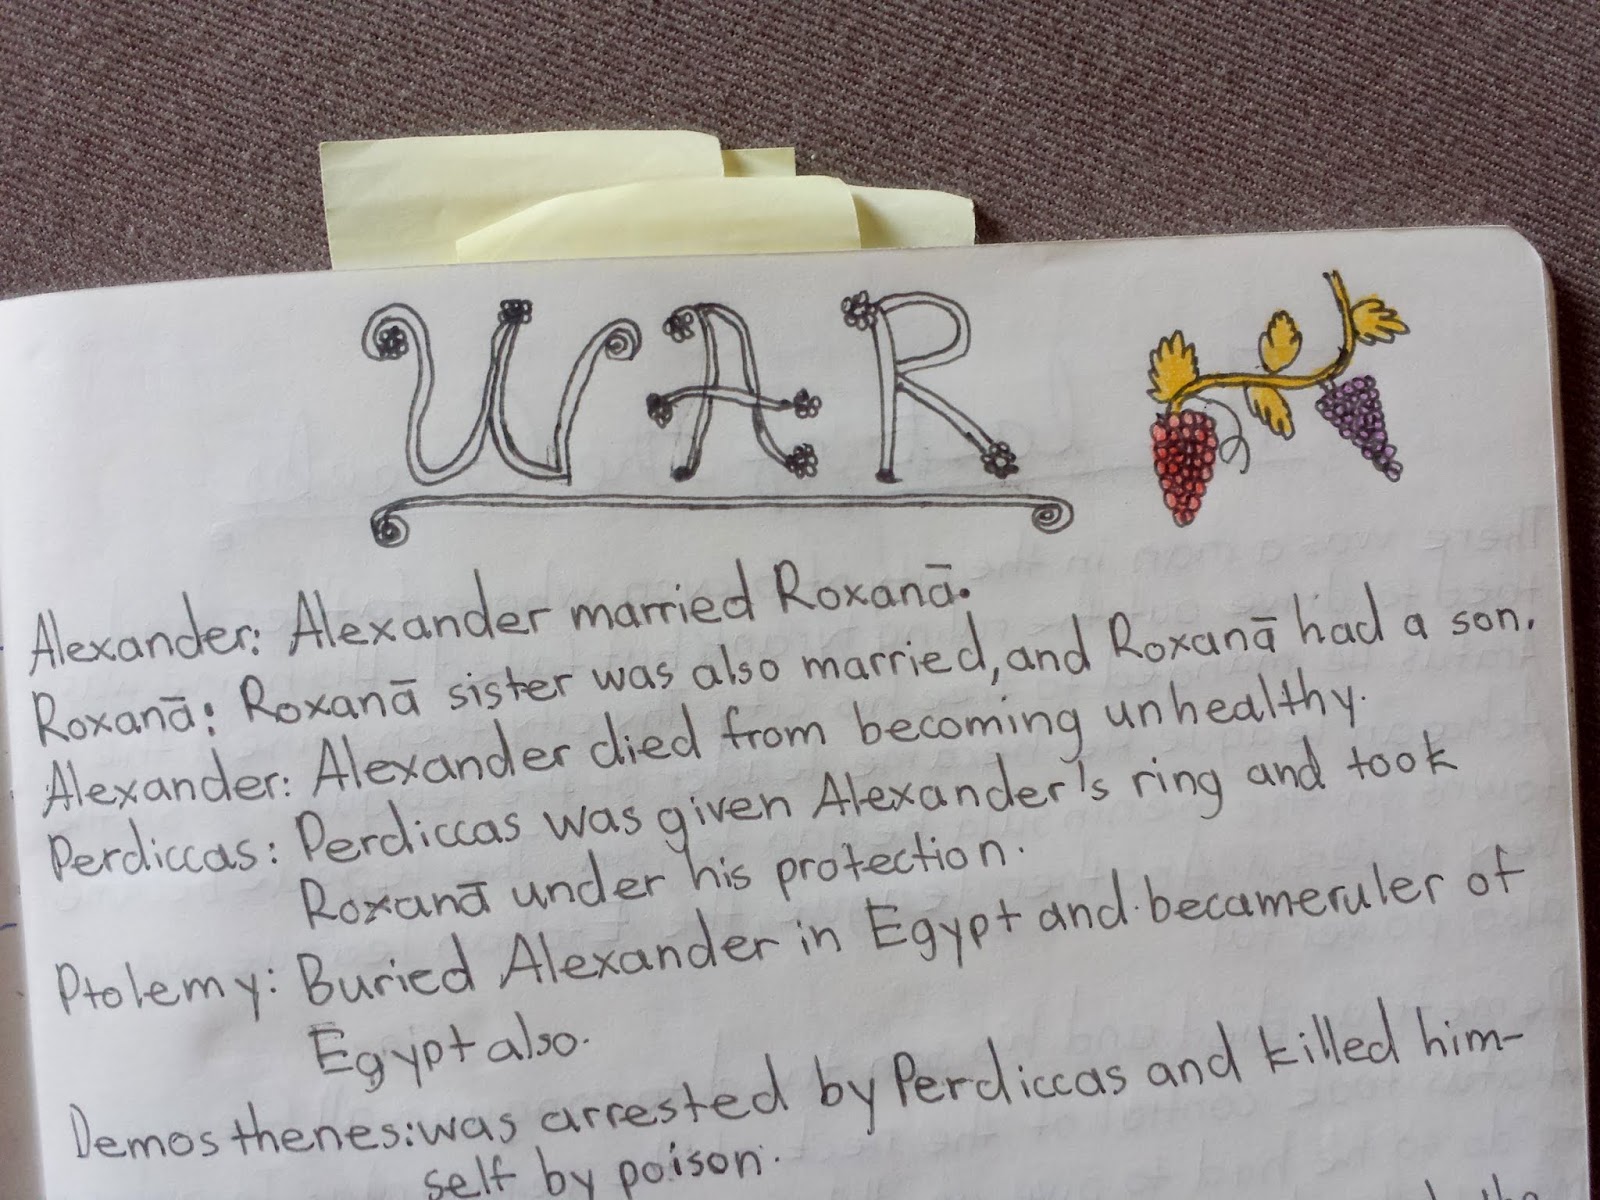 WAR
Alexander: Alexander married Roxanā.
Roxanā: Roxanā sister was also married, and Roxanā had a son.
Alexander: Alexander died from becoming unhealthy.
Perdiccas: Perdiccas was given Alexander's ring and took
Roxanā under his protection.
Ptolemy: Buried Alexander in Egypt and becameruler of
Egypt also.
Demosthenes: was arrested by Perdiccas and killed him-
self by poison.
the